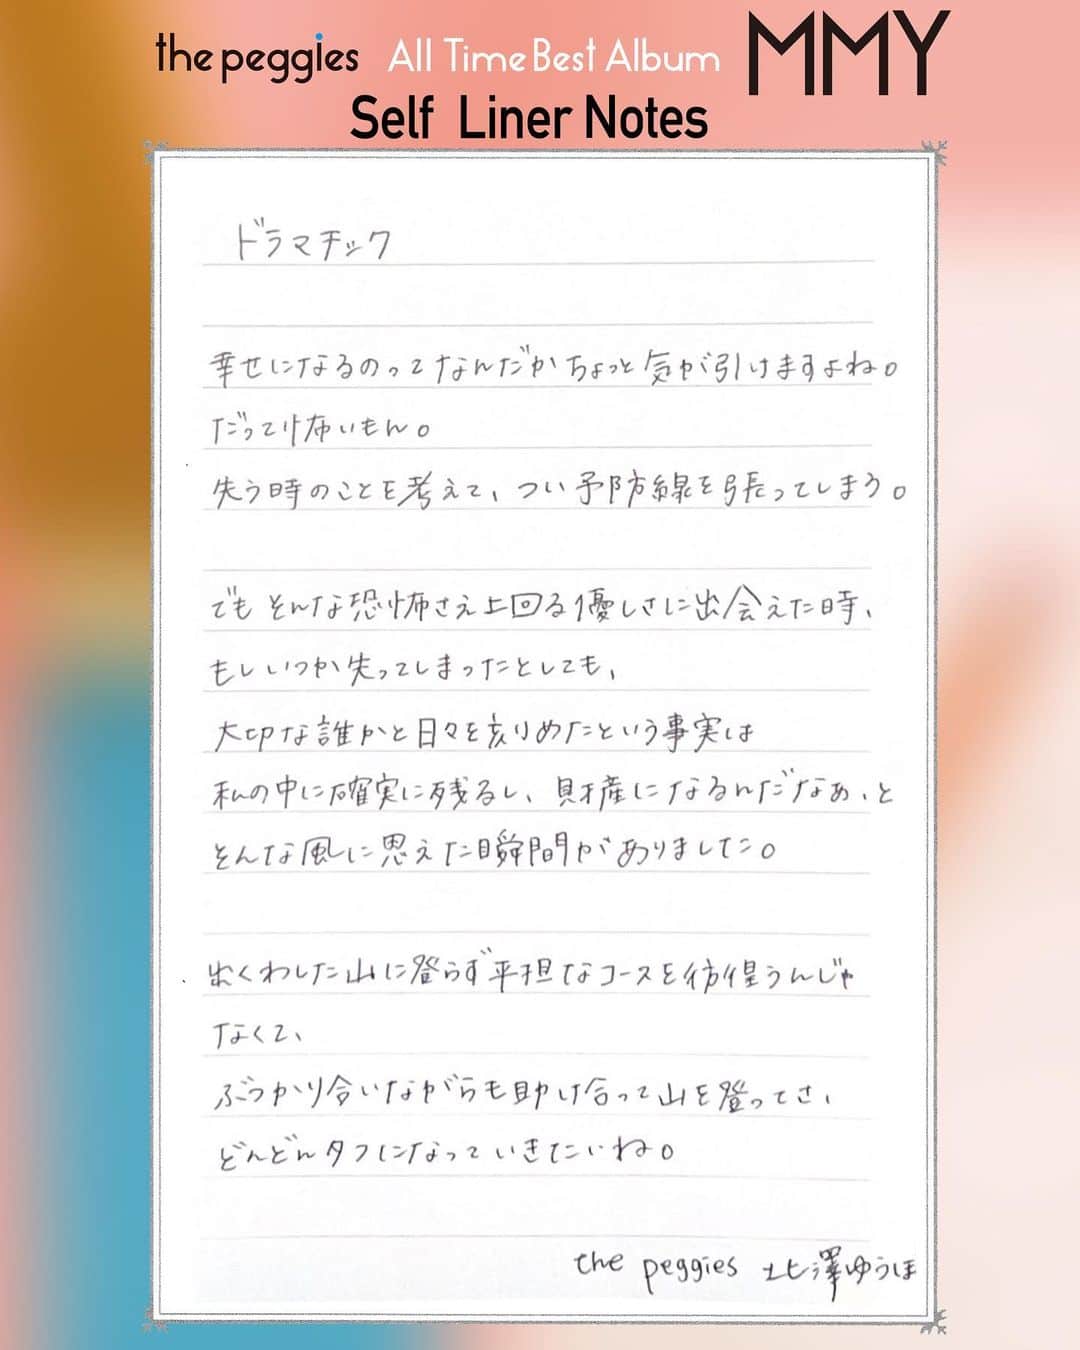 the peggies All Time Best Album MMY
Self Liner Notes
ドラマチック
幸せになるのってなんだかちょっと気が引けますよね。
だって怖いもん。
失う時のことを考えて、つい予防線を張ってしまう。
でもそんな恐怖さえ上回る優しさに出会えた時、
もしいつか失ってしまったとしても、
大切な誰かと日々を刻めたという事実は
私の中に確実に残るし、財産になるんだなぁ、と
そんな風に思えた瞬間がありました。
出くわした山に登らず平坦なコースを彷徨うんじゃ
なくて、
ぶつかり合いながらも助け合って山を登ってさ、
どんどんタフになっていきたいね。
the peggies 北澤ゆうほ